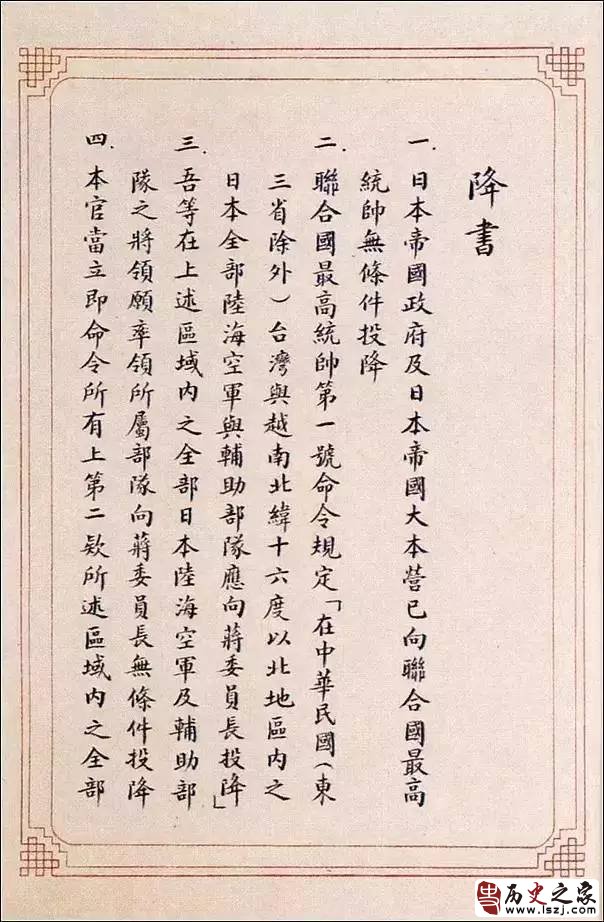 降書
一．日本帝國政府及日本帝國大本營已向聯合國最高
統帥無條件投降
二．聯合國最高統帥第一號命令規定「在中華民國（東
三省除外）台灣與越南北緯十六度以北地區內之
日本全部陸海空軍與輔助部隊應向蔣委員長投降」
三．吾等在上述區域內之全部日本陸海空軍及輔助部
隊之將領願率領所屬部隊向蔣委員長無條件投降
四．本官當立即命令所有上第二欵所述區域內之全部
历史之家
www.lszj.com